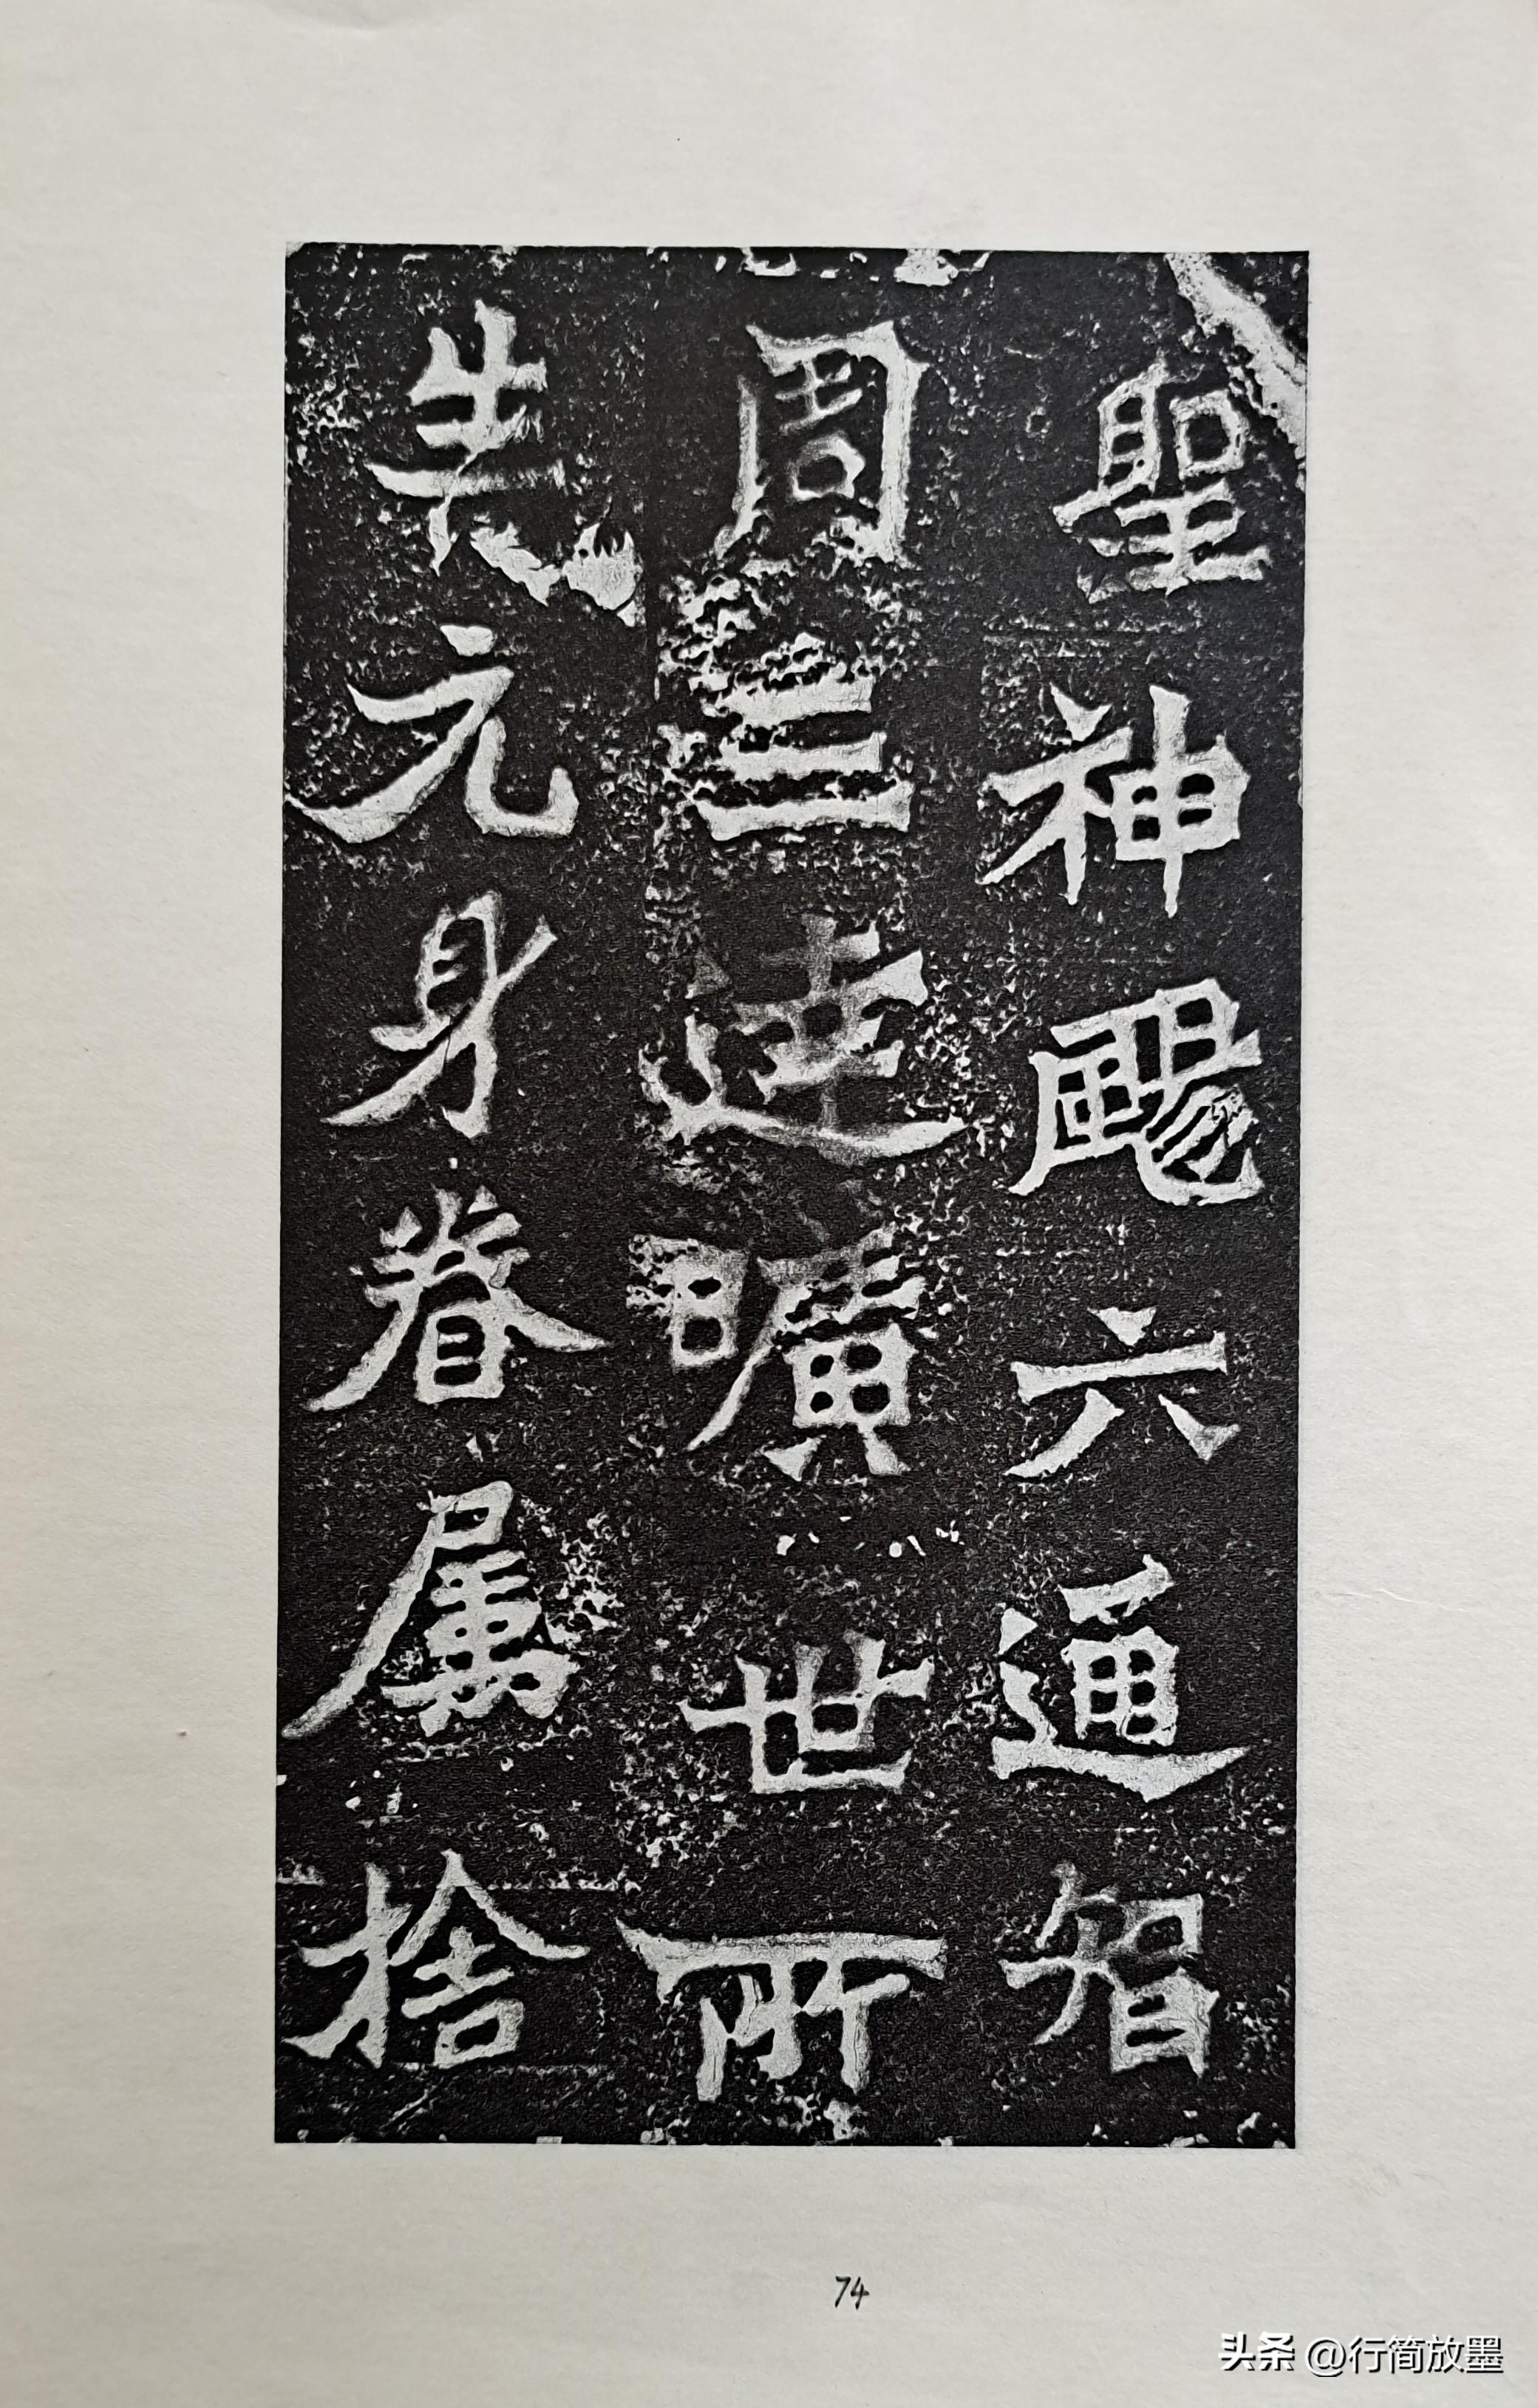 聖神颺六通智
周三達曠世所
先元身眷属捨
74
头条 @行简放墨